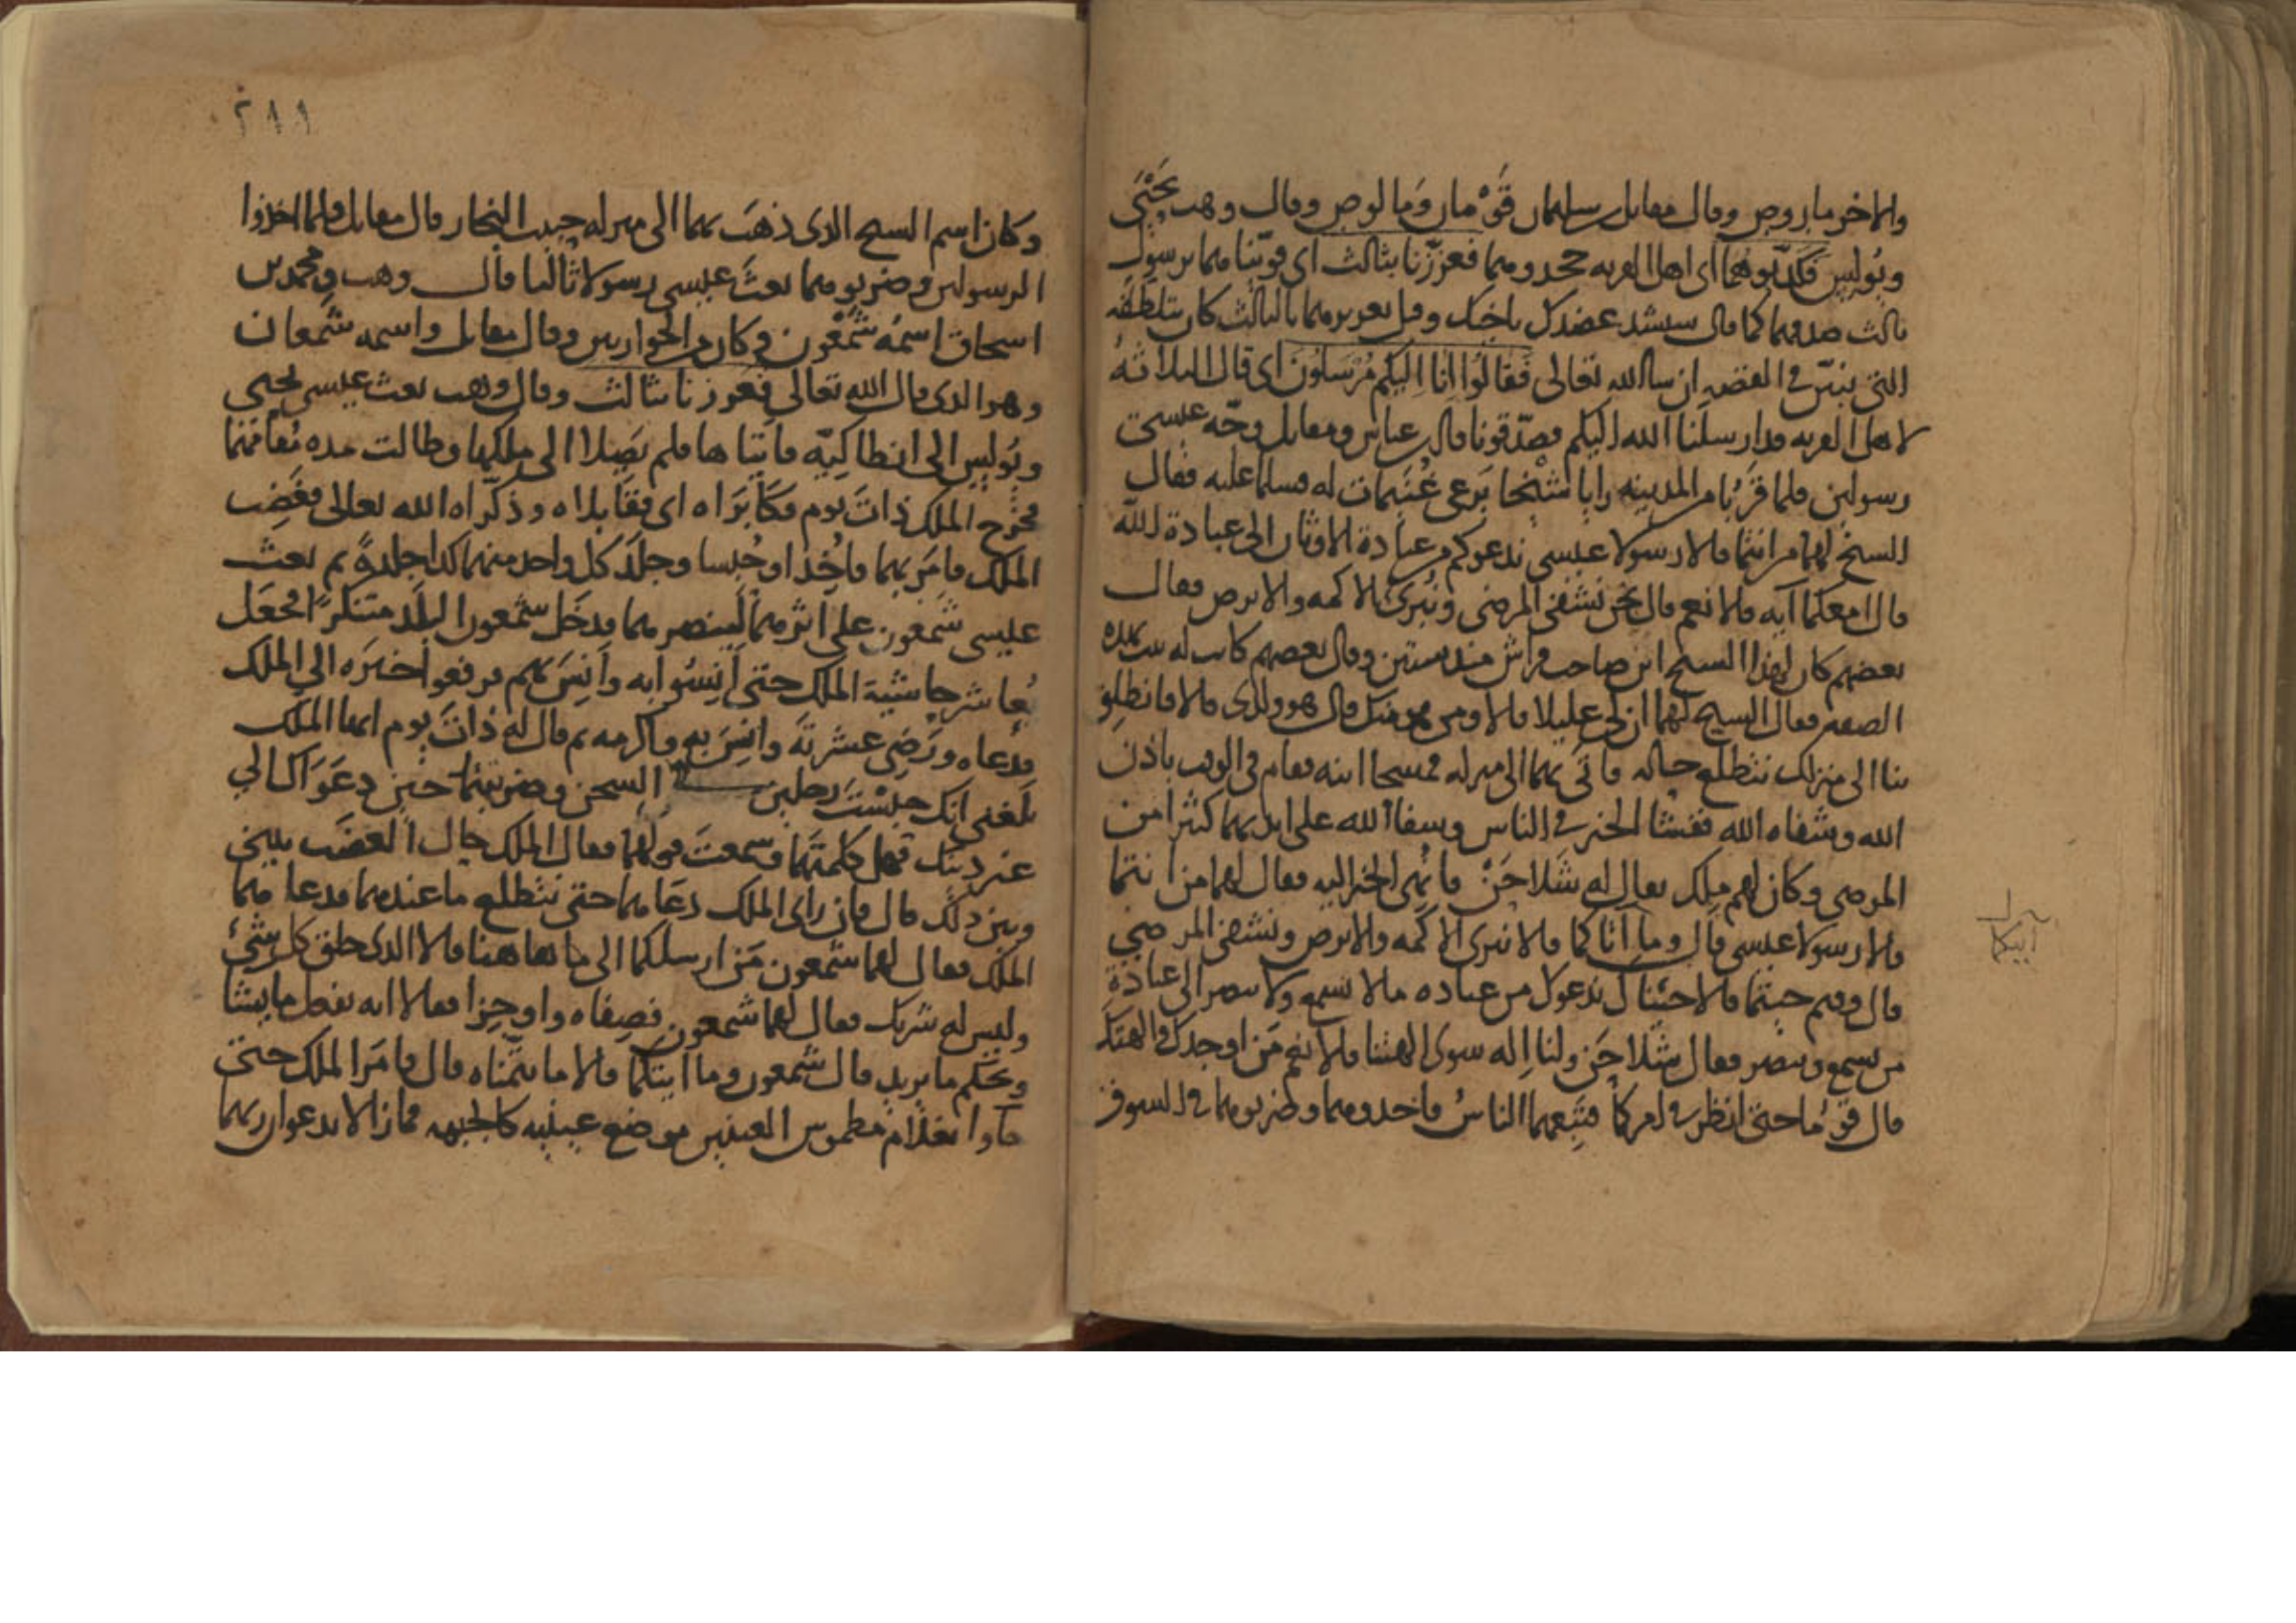 والاخر ماروص وقال مقاتل بن سليمان قومان ومالوص وقال وهب يحيى
وبولس فكذبوهما اى اهل القريه جحدوهما فعززنا بثالث اى قوينا هما برسول
ثالث صدقهما كما قال سنشد عضدك باخيك وقيل تعزيزهما بالثالث كان بتلطفه
التى تبين فى القصه ان شا الله تعالى فقالوا انا اليكم مرسلون اى قال الثلاثه
لاهل القريه قد ارسلنا الله اليكم فصدقونا قال بن عباس ومقاتل وجه عيسى
رسولين فلما قربا من المدينه رايا شيخا يرعى غنيمات له فسلما عليه فقال
الشيخ لهما من انتما قالا رسولا عيسى ندعوكم من عبادة الاوثان الى عبادة الله
قال امعكما آيه قالا نعم قال نحن نشفى المرضى ونبرئ الاكمه والابرص فقال
بعضهم كان لهذا الشيخ ابن صاحب فراش منذ سنتين وقال بعضهم كانت له بيت بهذه
الصفه فقال الشيخ لهما ان لى عليلا قالا ومن هو منك قال هو ولدى قالا فانطلق
بنا الى منزلك نتطلع حاله فاتى بهما الى منزله فمسحا ابنه فقام فى الوقت باذن
الله وشفاه الله ففشا الخبر فى الناس وشفا الله على ايديهما كثيرا من
المرضى وكان لهم ملك يقال له شلاحن فانهى الخبر اليه فقال لهما من انتما
قالا رسولا عيسى قال وما آتاكما قالا نبرئ الاكمه والابرص ونشفى المرضى
قال وفيم جئتما قالا جئناك ندعوك من عباده ما لا يسمع ولا يبصر الى عبادة
من يسمع ويبصر فقال شلاحن ولنا اله سوى الهتنا قالا نعم من اوجدك والهتك
قال قوما حتى انظر فى امركما فتبعهما الناس فاخذوهما وضربوهما فى السوق
آتيكما
٢١١
وكان اسم الشيخ الذى ذهب بهما الى منزله حبيب النجار قال مقاتل فلما اخذوا
الرسولين وضربوهما بعث عيسى رسولا ثالثا قال وهب ومحمد بن
اسحاق اسمه شمعون وكان من الحواريين وقال مقاتل واسمه شمعان
وهو الذى قال الله تعالى فعززنا بثالث وقال وهب بعث عيسى يحيى
وبولس الى انطاكيه فاتياها فلم يصلا الى ملكها وطالت مده مقامهما
فخرج الملك ذات يوم فكابراه اى فقابلاه وذكراه الله تعالى فغضب
الملك فامر بهما فاخذا وحبسا وجلد كل واحد منهما كذا جلدة ثم بعث
عيسى شمعون على اثرهما لينصرهما فدخل شمعون البلد متنكرا فجعل
يعاشر حاشية الملك حتى انسوا به وانس بهم فرفعوا خبره الى الملك
فدعاه ورضى عشرته وانس به واكرمه ثم قال له ذات يوم ايها الملك
بلغنى انك حبست رجلين فى السجن وضربتهما حين دعواك الى
غير دينك فهل كلمتهما وسمعت قولهما فقال الملك حال الغضب بينى
وبين ذلك قال فان راى الملك دعاهما حتى نتطلع ما عندهما فدعا هما
الملك فقال لهما شمعون من ارسلكما الى ها هاهنا قالا الذى خلق كل شئ
وليس له شريك فقال لهما شمعون فصفاه واوجزا فقالا انه يفعل ما يشا
ويحكم ما يريد قال شمعون وما آيتكما قالا ما تتمناه قال فامر الملك حتى
جاوا بغلام مطموس العينين موضع عينيه كالجبهه فما زالا يدعوان ربهما